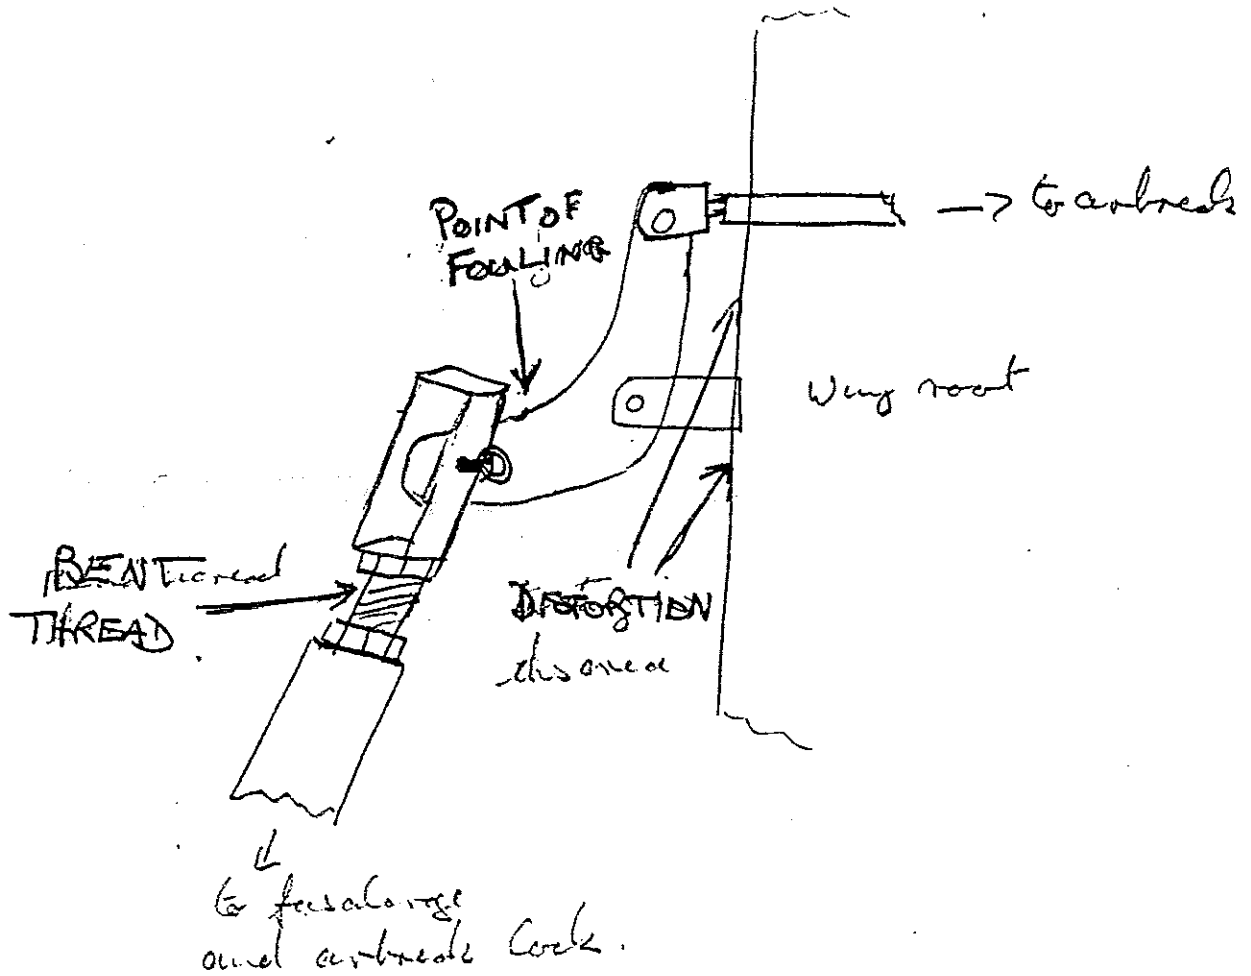 POINT OF
FOULING
→ to airbreak
Wing root
BENT
THREAD
DISTORTION
this area
to fusalarge
and airbreak lock.